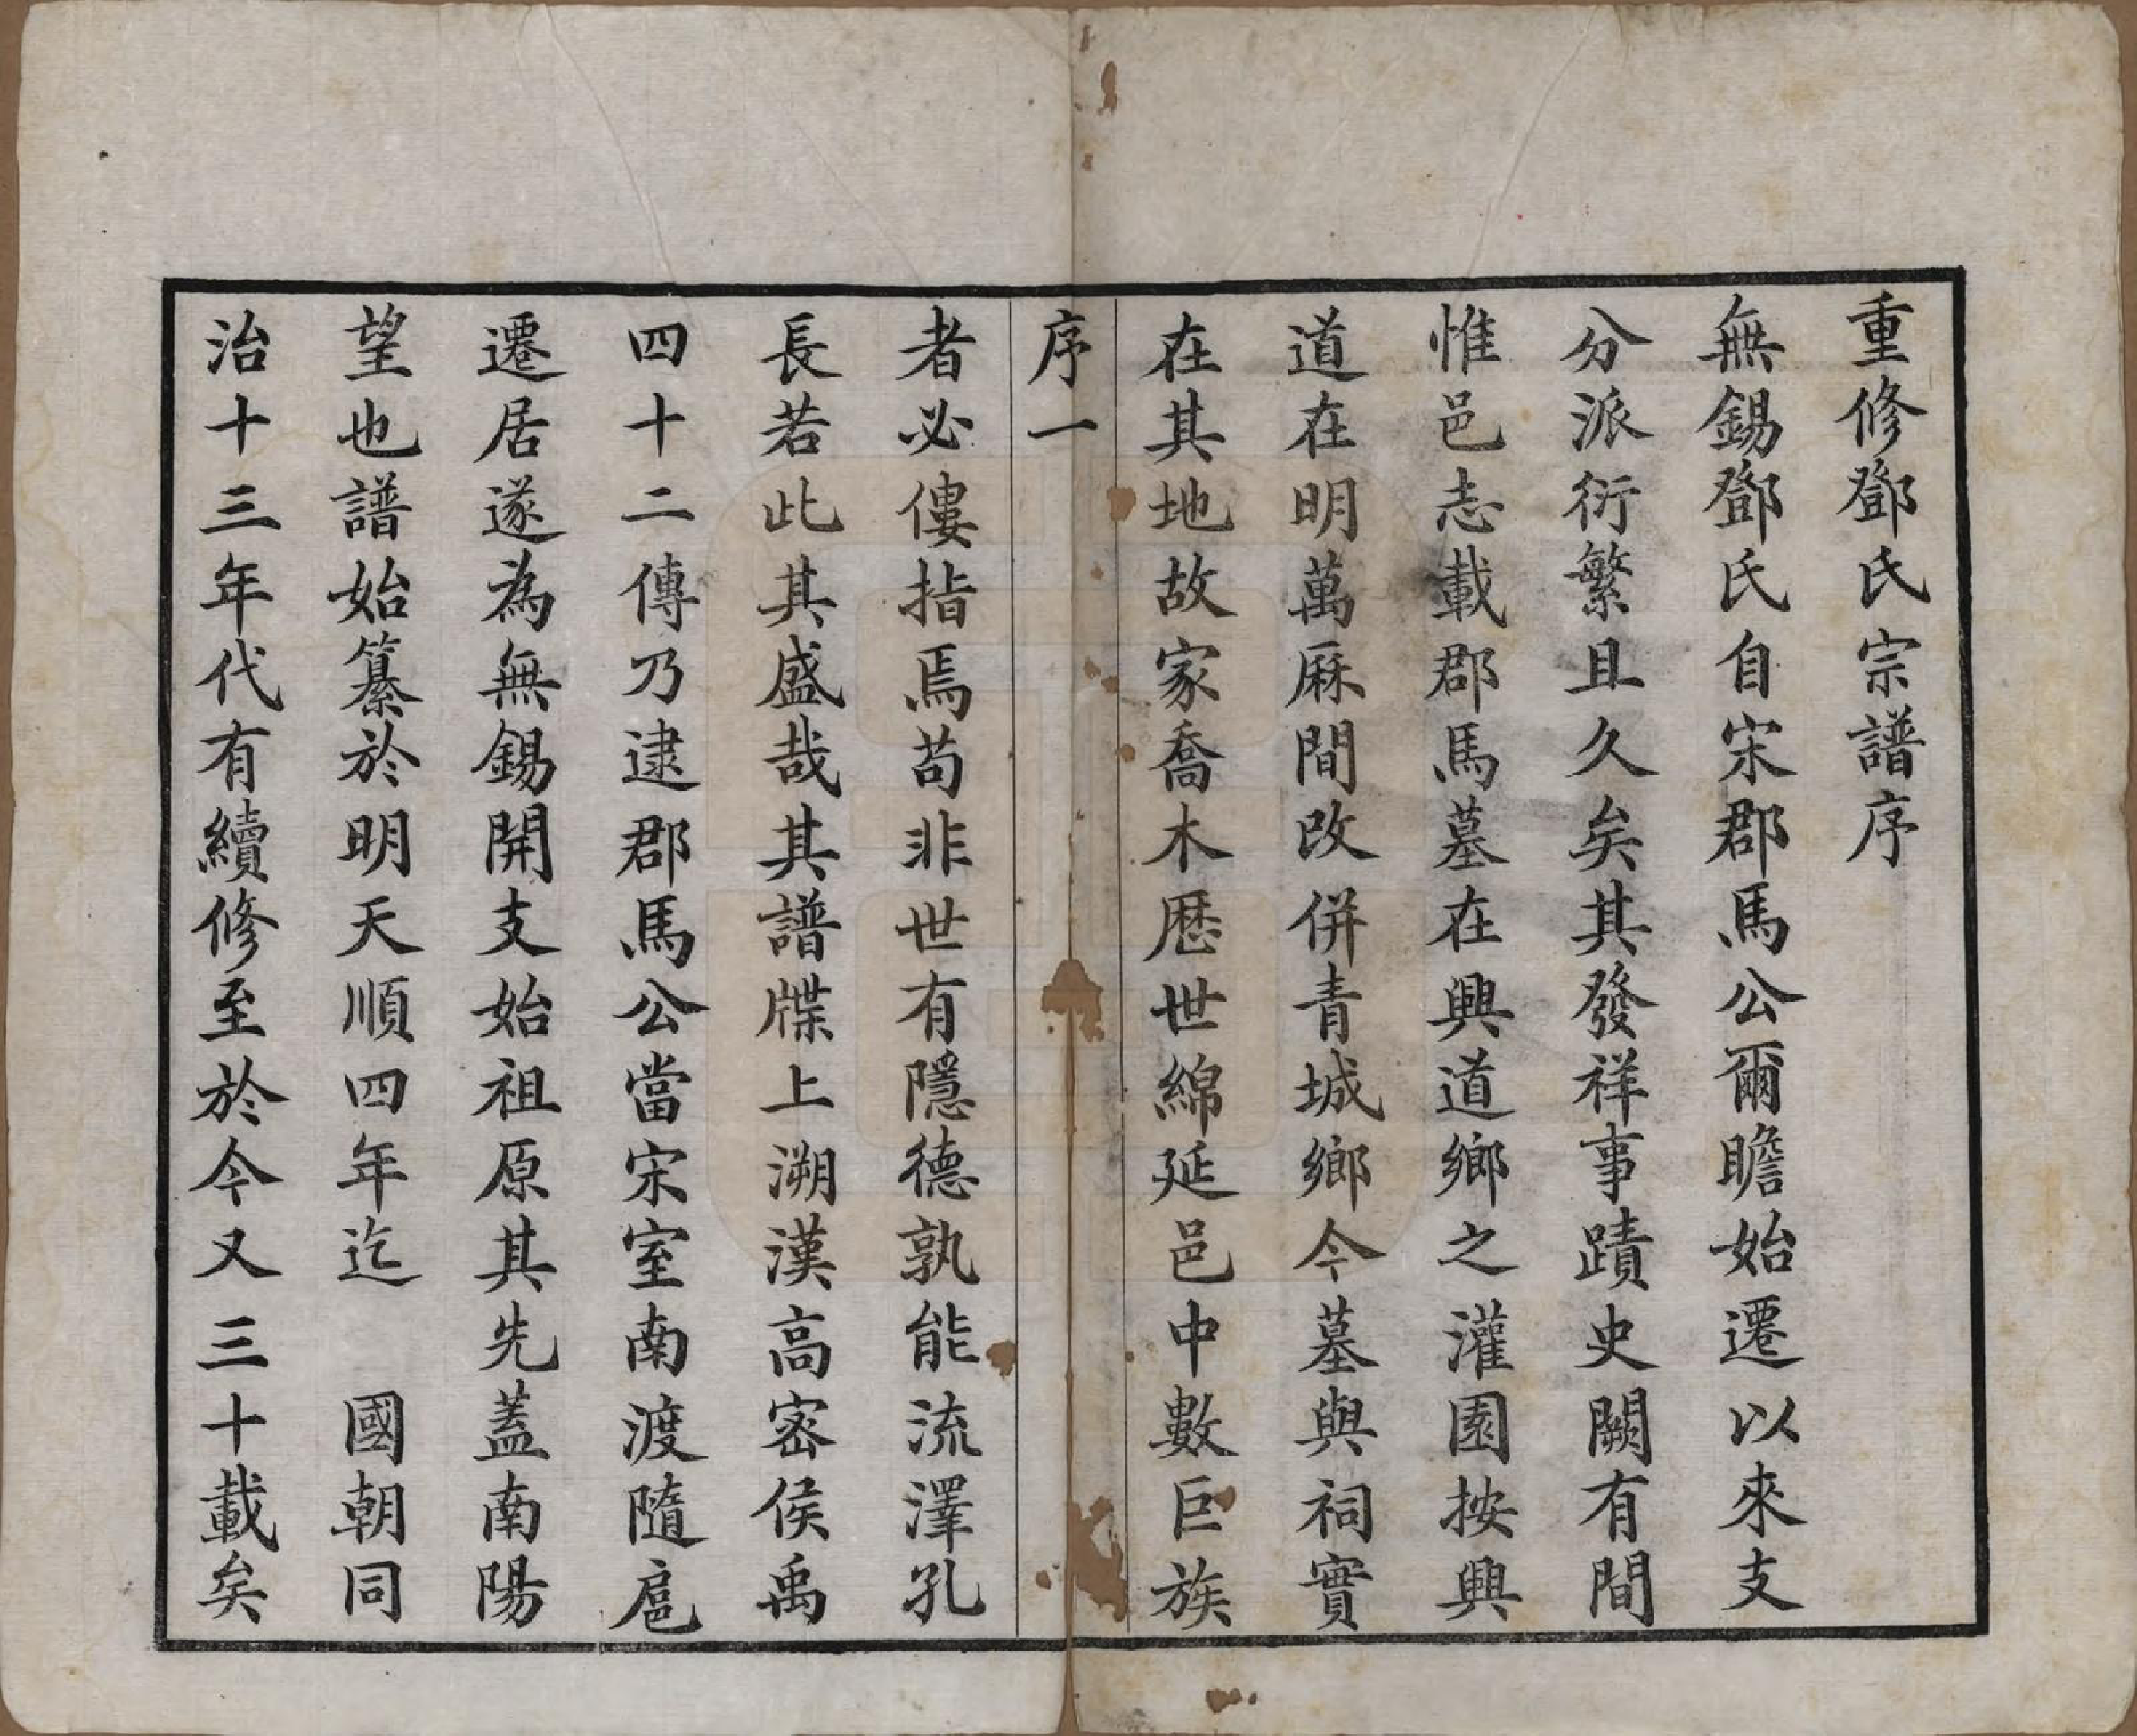 重修鄧氏宗譜序
無錫鄧氏自宋郡馬公爾瞻始遷以來支
分派衍繁且久矣其發祥事蹟史闕有間
惟邑志載郡馬墓在興道鄉之灌園按興
道在明萬厤間改併青城鄉今墓與祠實
在其地故家喬木厯世綿延邑中數巨族
序一
者必僂指焉苟非世有隱德孰能流澤孔
長若此其盛哉其譜牒上溯漢高密侯禹
四十二傳乃逮郡馬公當宋室南渡隨扈
遷居遂為無錫開支始祖原其先蓋南陽
望也譜始纂於明天順四年迄　國朝同
治十三年代有續修至於今又三十載矣